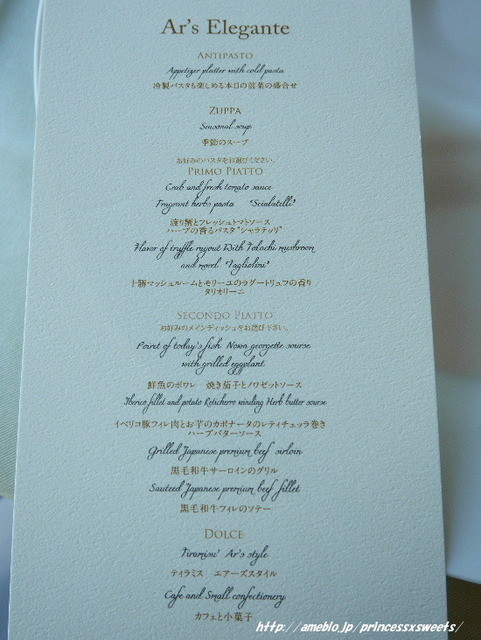 Ar's Elegante
ANTIPASTO
Appetizer platter with cold pasta
冷製パスタも楽しめる本日の前菜の盛合せ
ZUPPA
Seasonal soup
季節のスープ
お好みのパスタをお選びください。
PRIMO PIATTO
Crab and fresh tomato sauce
Fragrant herbs pasta "Scialatelli"
渡り蟹とフレッシュトマトソース
ハーブの香るパスタ"シャラテッリ"
Flavor of truffle ragout With Tokachi mushroom
and morel "Tagliolini"
十勝マッシュルームとモリーユのラグートリュフの香り
タリオリーニ
SECONDO PIATTO
お好みのメインディッシュをお選び下さい。
Poiret of today's fish Nowa georgette sourse
with grilled eggplant
鮮魚のポワレ 焼き茄子とノワゼットソース
Iberico fillet and potato Reticherro winding Herb butter sourse
イベリコ豚フィレ肉とお芋のカポナータのレティチェッラ巻き
ハーブバターソース
Grilled Japanese premium beef sirloin
黒毛和牛サーロインのグリル
Sauteed Japanese premium beef fillet
黒毛和牛フィレのソテー
DOLCE
Tiramisu' Ar's style
ティラミス エアーズスタイル
Cafe and Small confectionery
カフェと小菓子
http://ameblo.jp/princessxsweets/